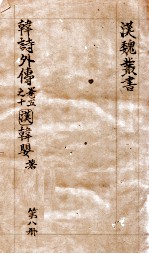 漢魏叢書
韓詩外傳 卷五之十 漢 韓嬰 著
第八册